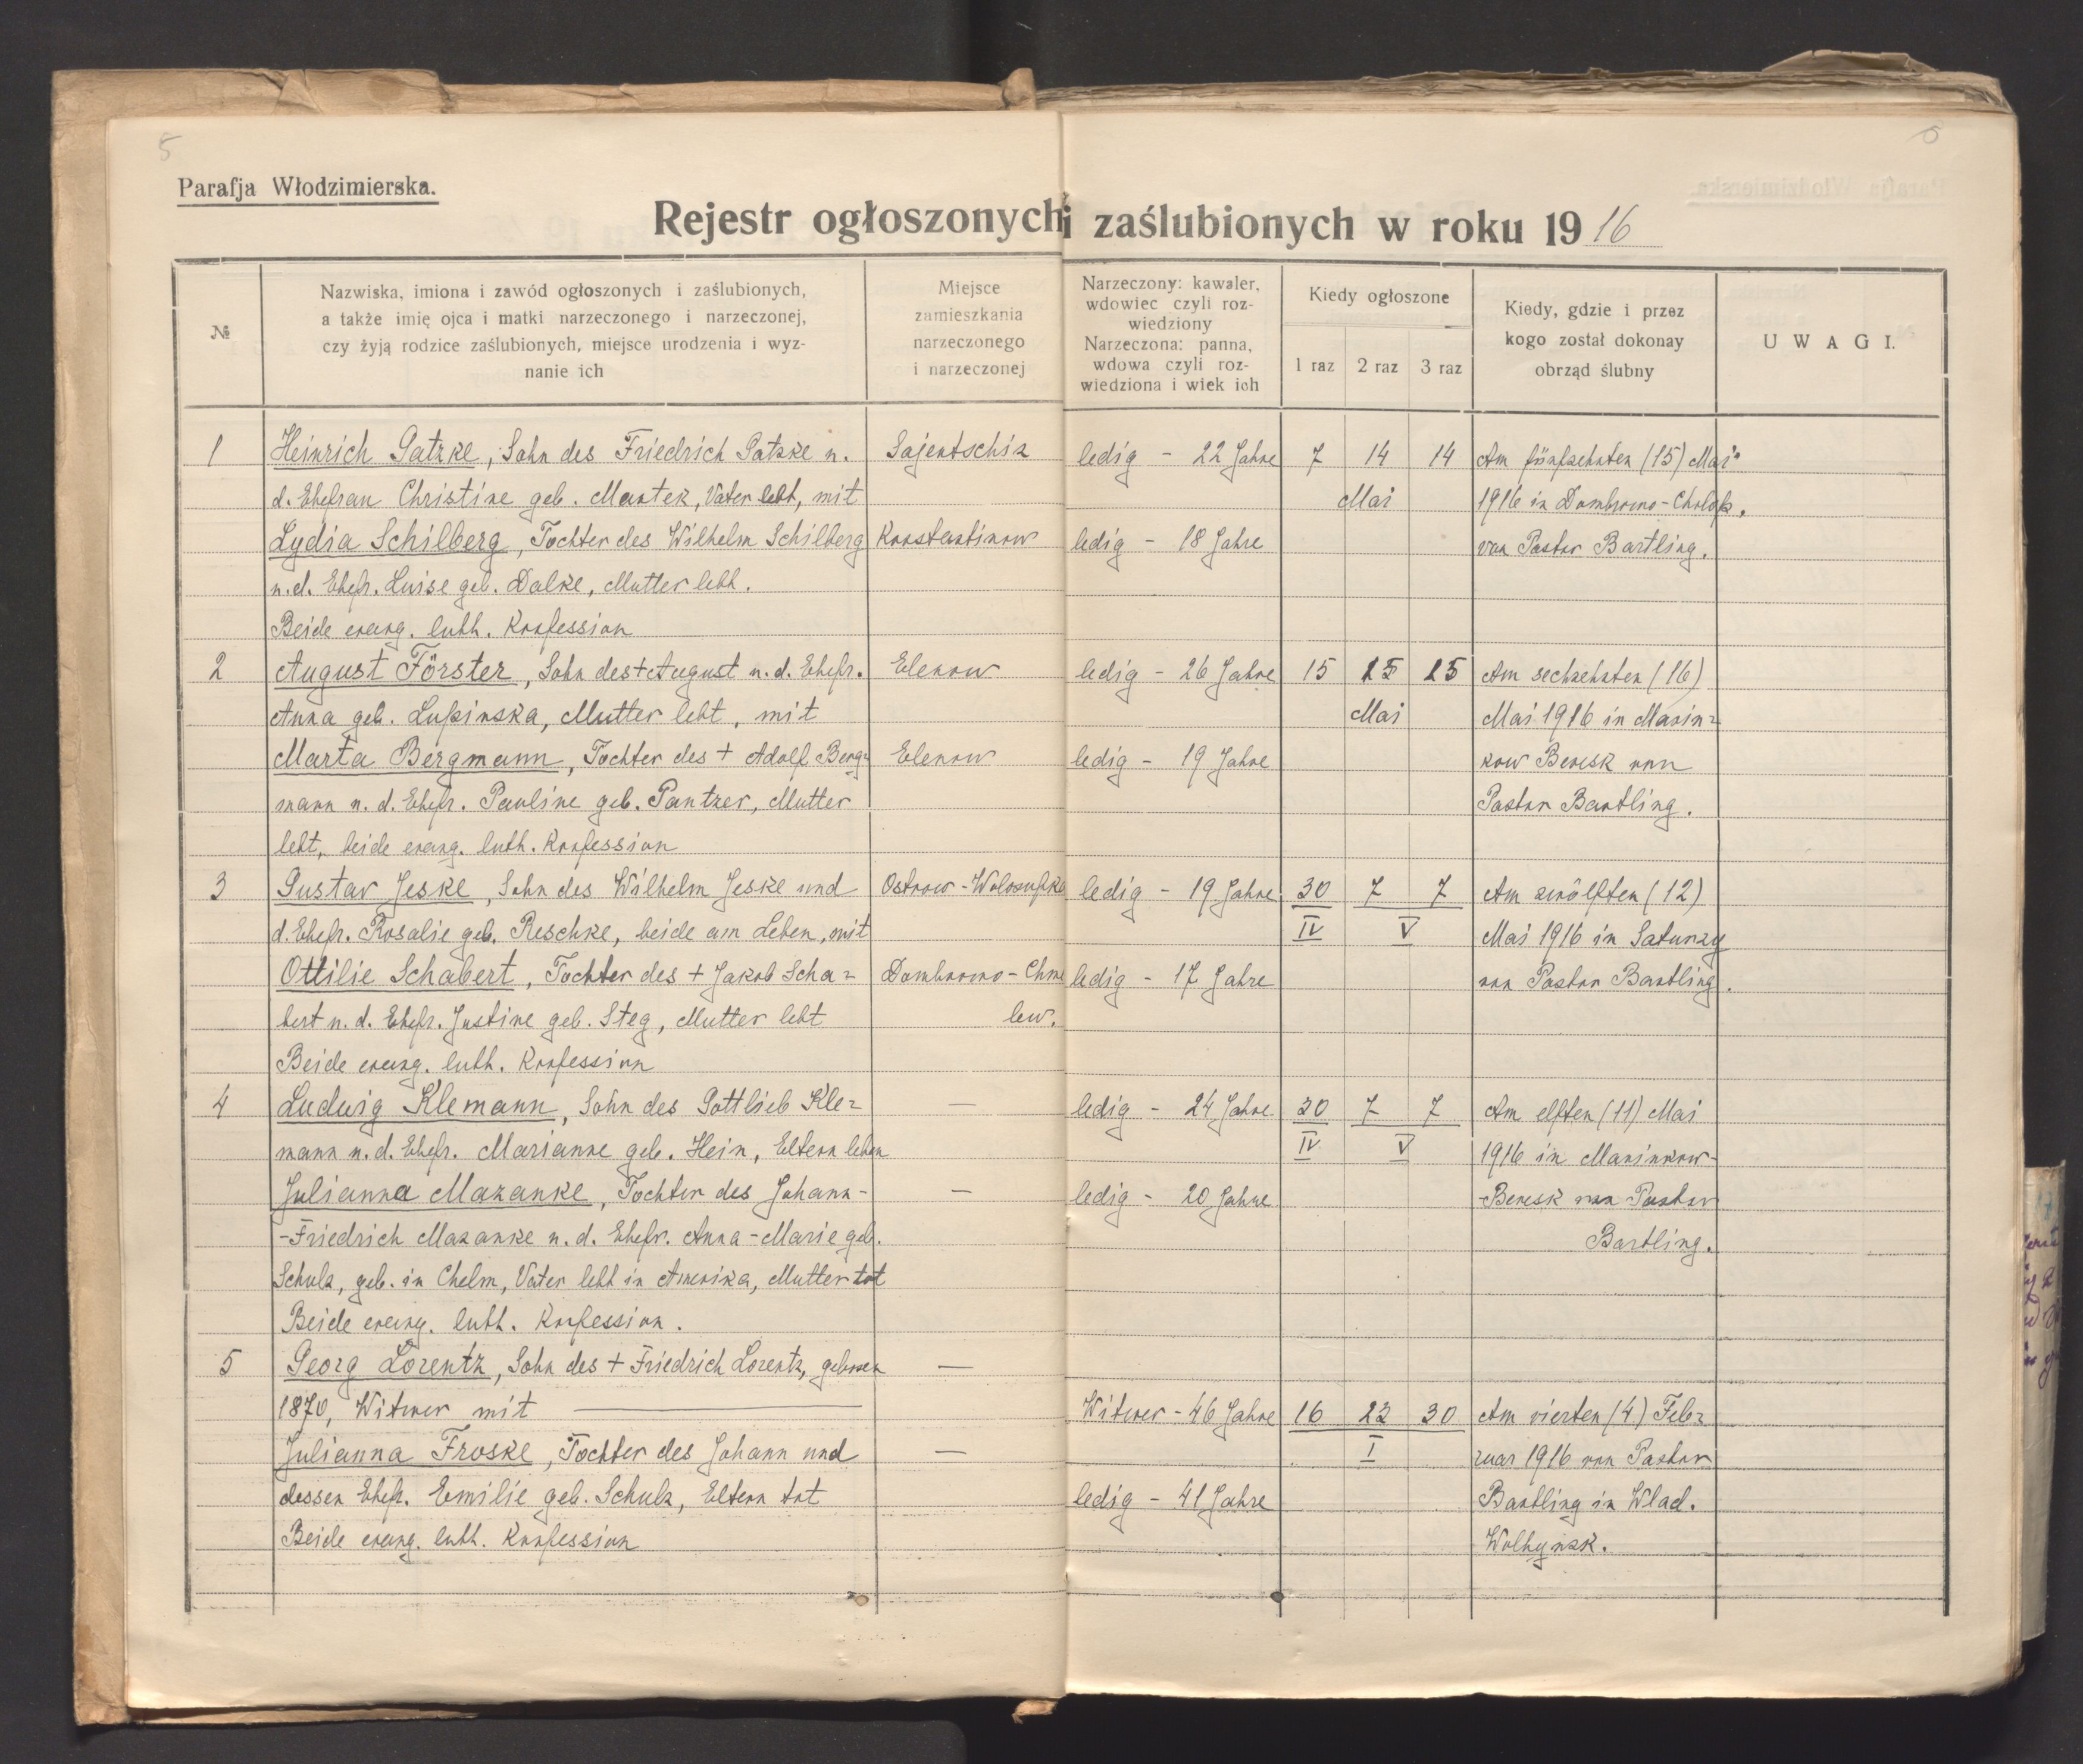 5
Parafja Włodzimierska.
Rejestr ogłoszonych i zaślubionych w roku 1916
№
Nazwiska, imiona i zawód ogłoszonych i zaślubionych,
a także imię ojca i matki narzeczonego i narzeczonej,
czy żyją rodzice zaślubionych, miejsce urodzenia i wyz-
nanie ich
Miejsce
zamieszkania
narzeczonego
i narzeczonej
Narzeczony: kawaler,
wdowiec czyli roz-
wiedziony
Narzeczona: panna,
wdowa czyli roz-
wiedziona i wiek ich
Kiedy ogłoszone
1 raz 2 raz 3 raz
Kiedy, gdzie i przez
kogo został dokonay
obrząd ślubny
UWAGI.
1 Heinrich Patzke, Sohn des Friedrich Patzke u. Sajentschiz ledig - 22 Jahre 7 14 14 Am fünfzehnten (15) Mai
d. Ehefrau Christine geb. Mantek, Vater lebt, mit Mai 1916 in Dombrowo-
Lydia Schilberg, Tochter des Wilhelm Schilberg Konstantinow ledig - 18 Jahre von Pastor Bartling.
u. d. Ehefr. Luise geb. Dalke, Mutter lebt.
Beide evang. luth. Konfession
2 August Förster, Sohn des + August u. d. Ehefr. Elenow ledig - 26 Jahre 15 15 15 Am sechzehnten (16)
Anna geb. Lupinska, Mutter lebt, mit Mai Mai 1916 in Marin=
Marta Bergmann, Tochter des + Adolf Berg= Elenow ledig - 19 Jahre kow Beresk von
mann u. d. Ehefr. Pauline geb. Pantzer, Mutter Pastor Bartling.
lebt, beide evang. luth. Konfession
3 Gustav Jeske, Sohn des Wilhelm Jeske und Ostrow - ledig - 19 Jahre 30 7 7 Am zwölften (12)
d. Ehefr. Rosalie geb. Reschke, beide am Leben, mit IV V Mai 1916 in Saturzy
Ottilie Schabert, Tochter des + Jakob Scha= Dombrowo - Chme ledig - 17 Jahre von Pastor Bartling.
bert u. d. Ehefr. Justine geb. Steg, Mutter lebt lew.
Beide evang. luth. Konfession
4 Ludwig Klemann, Sohn des Gottlieb Kle= — ledig - 24 Jahre 30 7 7 Am elften (11) Mai
mann u. d. Ehefr. Marianne geb. Hein, Eltern leben IV V 1916 in Marinkow-
Julianna Mazanke, Tochter des Johann- — ledig - 20 Jahre -Beresk von Pastor
-Friedrich Mazanke u. d. Ehefr. Anna-Marie geb. Bartling.
Schulz, geb. in Chelm, Vater lebt in Amerika, Mutter tot
Beide evang. luth. Konfession.
5 Georg Lorentz, Sohn des + Friedrich Lorentz, geboren —
1870, Witwer mit — Witwer - 46 Jahre 16 23 30 Am vierten (4) Feb=
Julianna Froske, Tochter des Johann und — I ruar 1916 von Pastor
dessen Ehefr. Emilie geb. Schulz, Eltern tot ledig - 41 Jahre Bartling in Wlad.
Beide evang. luth. Konfession Wolhynsk.